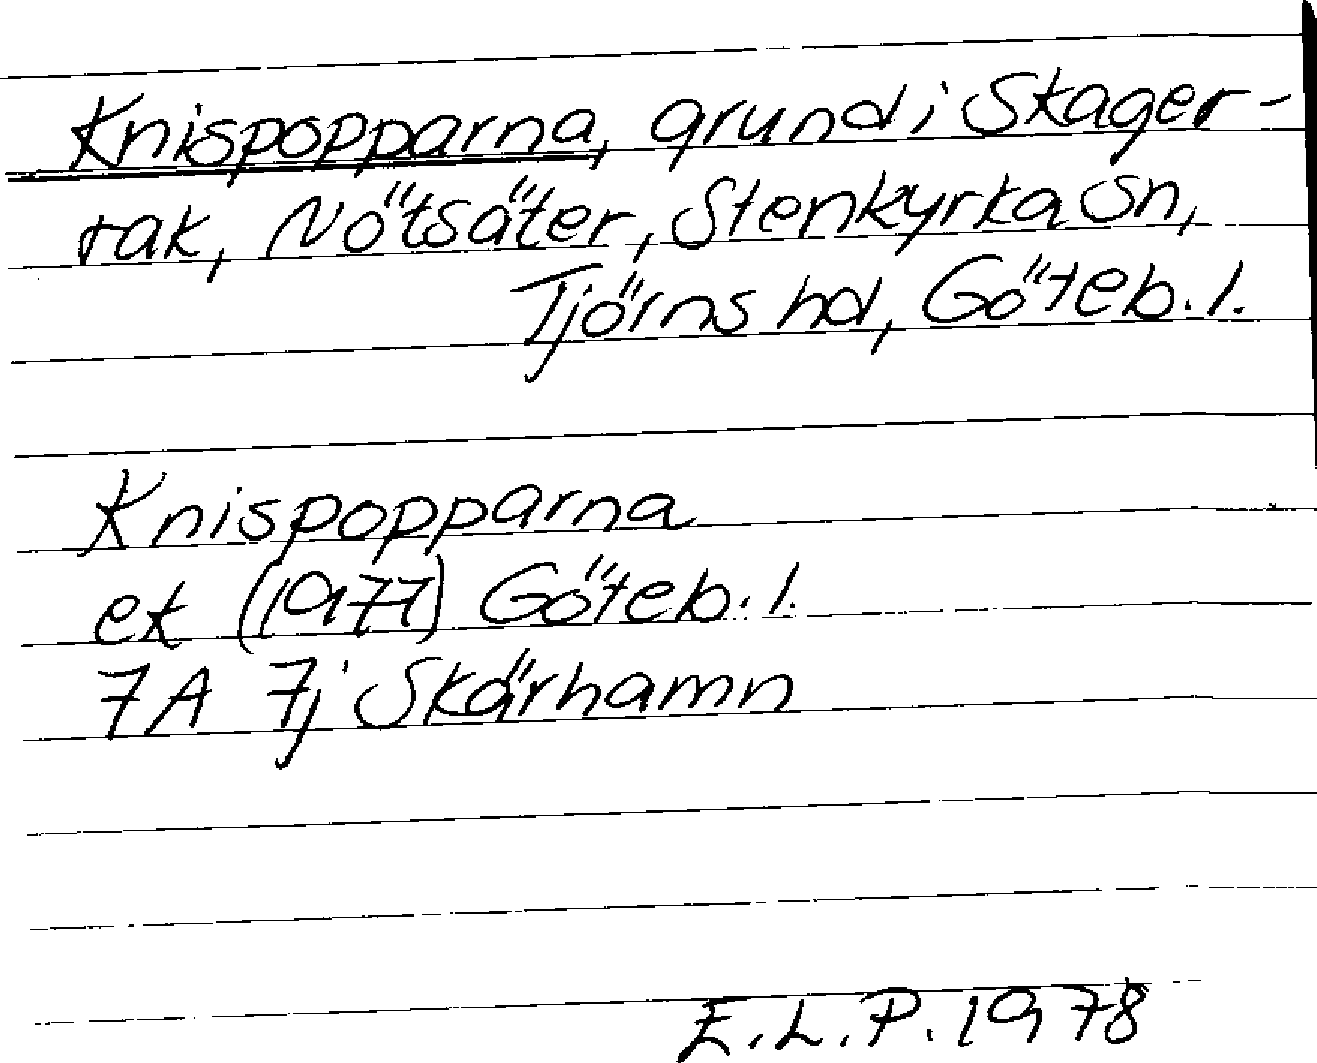 Knispopparna, grund i Skager-
rak, Nötsäter, Stenkyrka sn,
Tjörns hd, Göteb. l.
Knispopparna
ek (1977) Göteb. l.
7A 7j Skärhamn
E.L.P. 1978